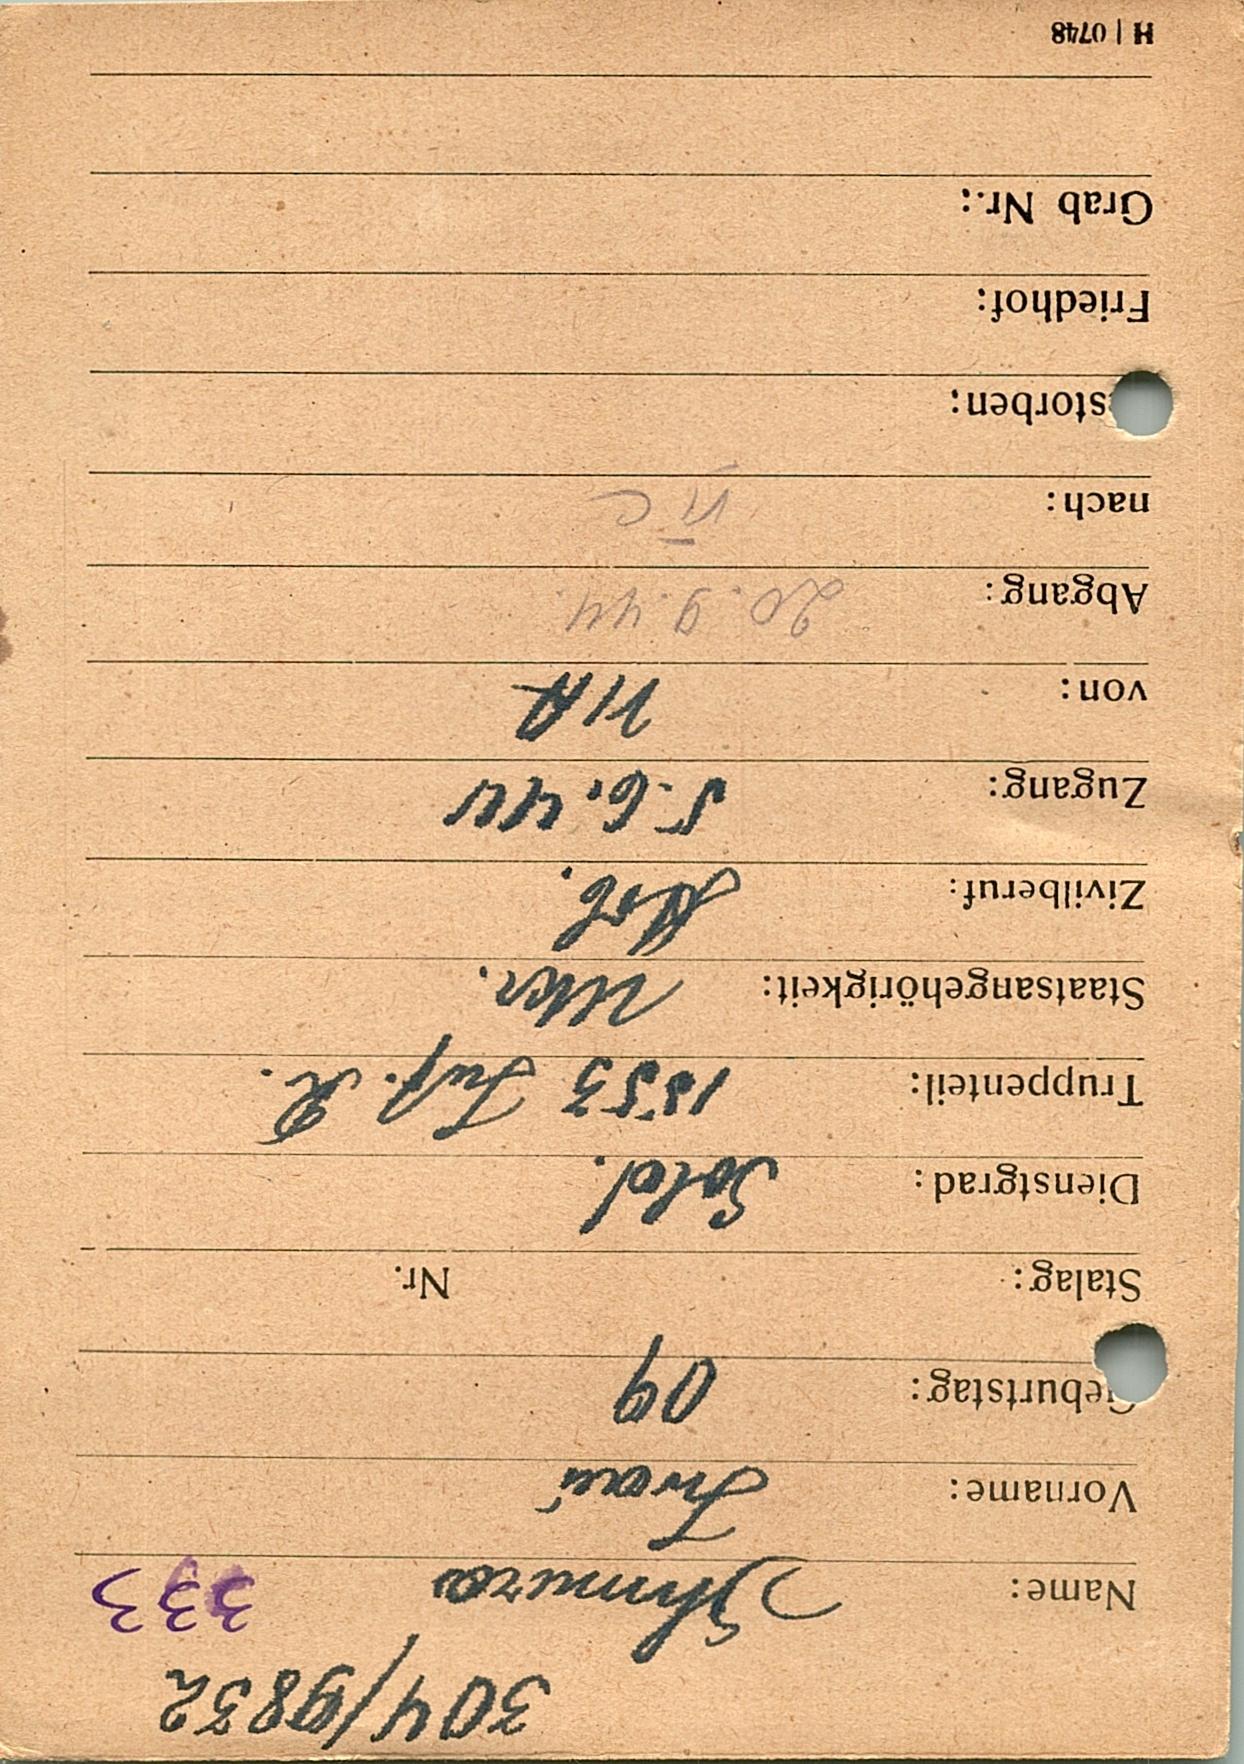 304/9832
333
Name: Shmura
Vorname: Iwan
Geburtstag: 09
Stalag: Nr.
Dienstgrad: Sold.
Truppenteil: 1553 Inf. R.
Staatsangehörigkeit: Ukr.
Zivilberuf: Arb.
Zugang: 5.6.44
von: VI A
Abgang: 20.9.44.
nach: VI C
storben:
Friedhof:
Grab Nr.:
H | 0748